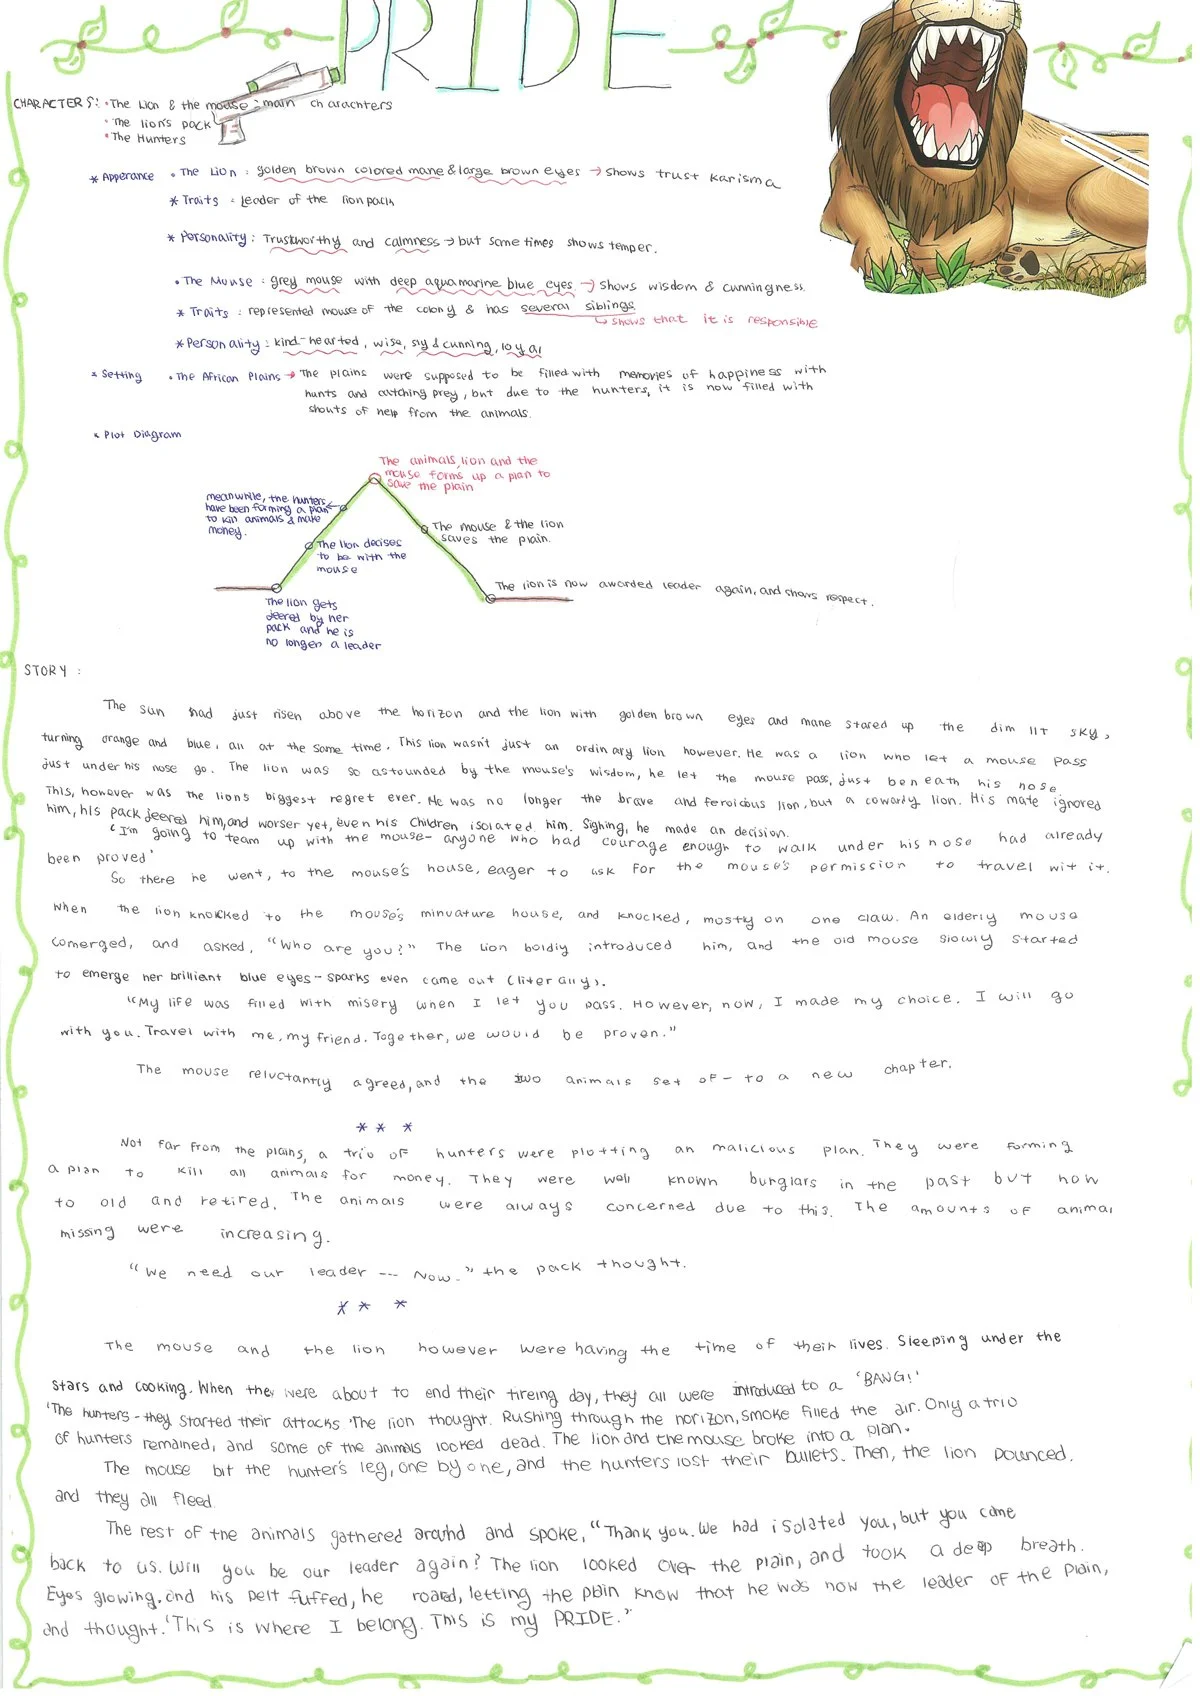 PRIDE
CHARACTERS: • The Lion & the mouse : main charachters
• The lion's pack
• The Hunters
* Apperance • The Lion : golden brown colored mane & large brown eyes → shows trust karisma
* Traits : leader of the lion pack
* Personality : Trustworthy and calmness → but sometimes shows temper.
• The Mouse : grey mouse with deep aquamarine blue eyes → shows wisdom & cunningness.
* Traits : represented mouse of the colony & has several siblings
↳ shows that it is responsible
* Personality : kind-hearted, wise, sly & cunning, loyal
* Setting • The African Plains → The plains were supposed to be filled with memories of happiness with
hunts and catching prey, but due to the hunters, it is now filled with
shouts of help from the animals.
* Plot Diagram
The animals, lion and the
mouse forms up a plan to
save the plain
meanwhile, the hunters
have been forming a plan
to kill animals & make
money.
The mouse & the lion
saves the plain.
The lion decises
to be with the
mouse
The lion is now awarded leader again, and shows respect.
The lion gets
jeered by her
pack and he is
no longer a leader
STORY :
The sun had just risen above the horizon and the lion with golden brown eyes and mane stared up the dim lit sky,
turning orange and blue, all at the same time. This lion wasn't just an ordinary lion however. He was a lion who let a mouse pass
just under his nose go. The lion was so astounded by the mouse's wisdom, he let the mouse pass, just beneath his nose.
This, however was the lions biggest regret ever. He was no longer the brave and feroicious lion, but a cowardly lion. His mate ignored
him, his pack jeered him, and worser yet, even his children isolated him. Sighing, he made an decision.
'I'm going to team up with the mouse - anyone who had courage enough to walk under his nose had already
been proved'
So there he went, to the mouse's house, eager to ask for the mouse's permission to travel wit it.
When the lion knocked to the mouse's minuature house, and knocked, mostly on one claw. An elderly mouse
comerged, and asked, "Who are you?" The lion boldly introduced him, and the old mouse slowly started
to emerge her brilliant blue eyes - sparks even came out (literally).
"My life was filled with misery when I let you pass. However, now, I made my choice. I will go
with you. Travel with me, my friend. Together, we would be proven."
The mouse reluctantly agreed, and the two animals set of - to a new chapter.
* * *
Not far from the plains, a trio of hunters were plotting an malicious plan. They were forming
a plan to kill all animals for money. They were well known burglars in the past but now
to old and retired. The animals were always concerned due to this. The amounts of animal
missing were increasing.
"We need our leader --- Now." the pack thought.
* * *
The mouse and the lion however were having the time of their lives. Sleeping under the
stars and cooking. When they were about to end their tireing day, they all were introduced to a 'BANG!'
'The hunters - they started their attacks' The lion thought. Rushing through the horizon, smoke filled the air. Only a trio
of hunters remained, and some of the animals looked dead. The lion and the mouse broke into a plan.
The mouse bit the hunter's leg, one by one, and the hunters lost their bullets. Then, the lion pounced.
and they all fleed
The rest of the animals gathered around and spoke, "Thank you. We had isolated you, but you came
back to us. Will you be our leader again? The lion looked over the plain, and took a deep breath.
Eyes glowing. and his pelt fuffed, he roared, letting the plain know that he was now the leader of the plain,
and thought. 'This is where I belong. This is my PRIDE.'